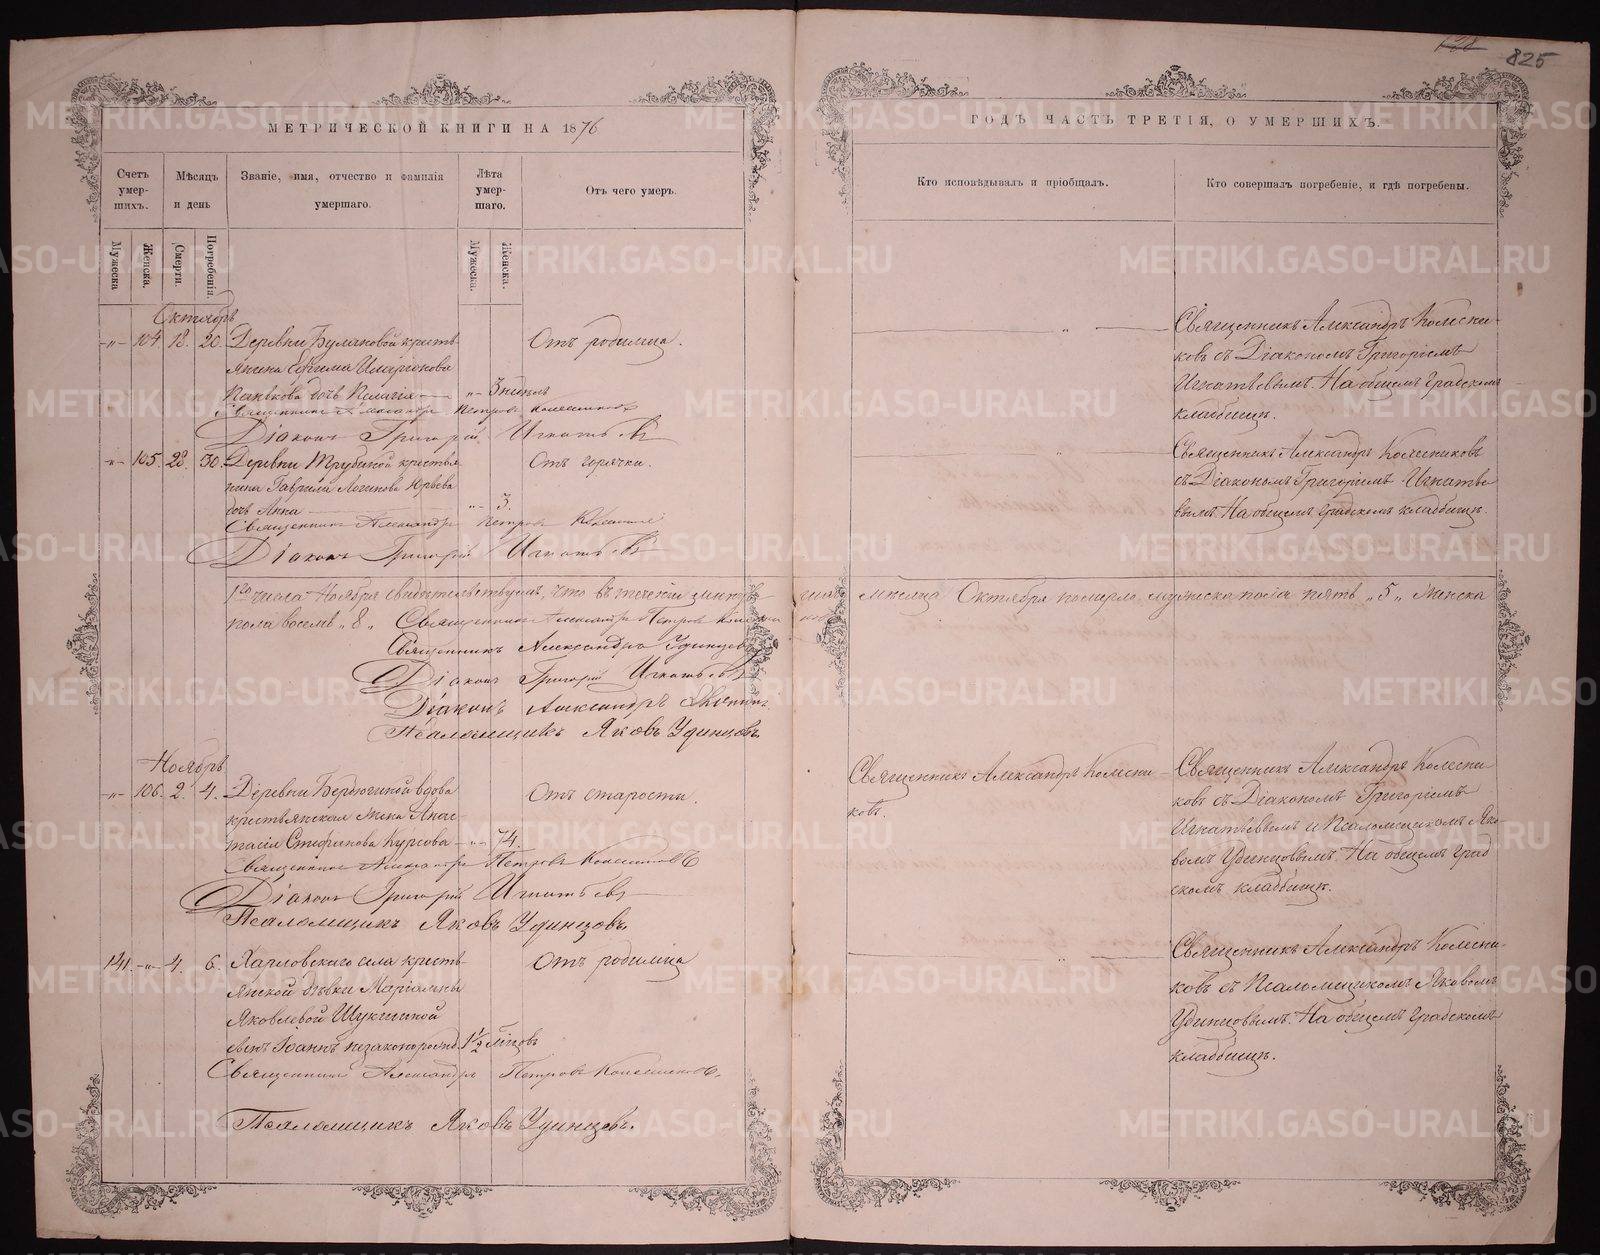 128
825
МЕТРИЧЕСКОЙ КНИГИ НА 1876
ГОДЪ ЧАСТЬ ТРЕТІЯ, О УМЕРШИХЪ.
Счетъ умер-шихъ.
Мужеска
Женска.
Мѣсяцъ и день
Смерти.
Погребенія.
Званіе, имя, отчество и фамилія умершаго.
Лѣта умер-шаго.
Мужеска.
Женска.
Отъ чего умеръ.
Кто исповѣдывалъ и пріобщалъ.
Кто совершалъ погребеніе, и гдѣ погребены.
Октябрь
-"- 104. 18. 20. Деревни Булановой кресть-
янина Ефима Иларіонова
дочь Пелагія -"- 3 недѣль
Отъ родимца.
Священникъ Александръ Колесни-
ковъ съ Діакономъ Григоріемъ
Игнатьевымъ. На общемъ градскомъ
кладбищѣ.
Священникъ Александръ Петровъ Колесниковъ
Діаконъ Григорій Игнатьевъ
-"- 105. 28. 30. Деревни Трубиной крестья
нина Гавріила Логинова Юрьева
дочь Анна -"- 3.
Отъ горячки.
Священникъ Александръ Колесниковъ
съ Діакономъ Григоріемъ Игнатье
вымъ На общемъ градскомъ кладбищѣ.
Священникъ Александръ Петровъ Колесниковъ
Діаконъ Григорій Игнатьевъ
1го числа Ноября свидѣтельствуемъ, что въ теченіи мѣсяца Октября померло мужеска пола пять "5" женска
пола восемь "8" Священникъ Александръ Петровъ
Священникъ Александръ Удинцевъ
Діаконъ Григорій Игнатьевъ
Діаконъ Александръ
Псаломщикъ Яковъ Удинцовъ.
Ноябрь
-"- 106. 2. 4. Деревни Бердюгиной вдова
крестьянская жена Анас-
тасія Стефанова Курсова -"- 74.
Отъ старости.
Священникъ Александръ Колесни-
ковъ.
Священникъ Александръ Колесни-
ковъ съ Діакономъ Григоріемъ
Игнатьевымъ и Псаломщикомъ Яко
вомъ Удинцовымъ. На общемъ град
скомъ кладбищѣ.
Священникъ Александръ Петровъ Колесниковъ
Діаконъ Григорій Игнатьевъ
Псаломщикъ Яковъ Удинцовъ.
141. -"- 4. 6. Харловскаго села кресть-
янской дѣвки Маріамны
Яковлевой Щукиной
сынъ Іоаннъ незаконорожд. 1½ мѣсцовъ
Отъ родимца
Священникъ Александръ Колесни-
ковъ съ Псаломщикомъ Яковомъ
Удинцовымъ. На общемъ градскомъ
кладбищѣ.
Священникъ Александръ Петровъ Колесниковъ.
Псаломщикъ Яковъ Удинцовъ.
METRIKI.GASO-URAL.RU